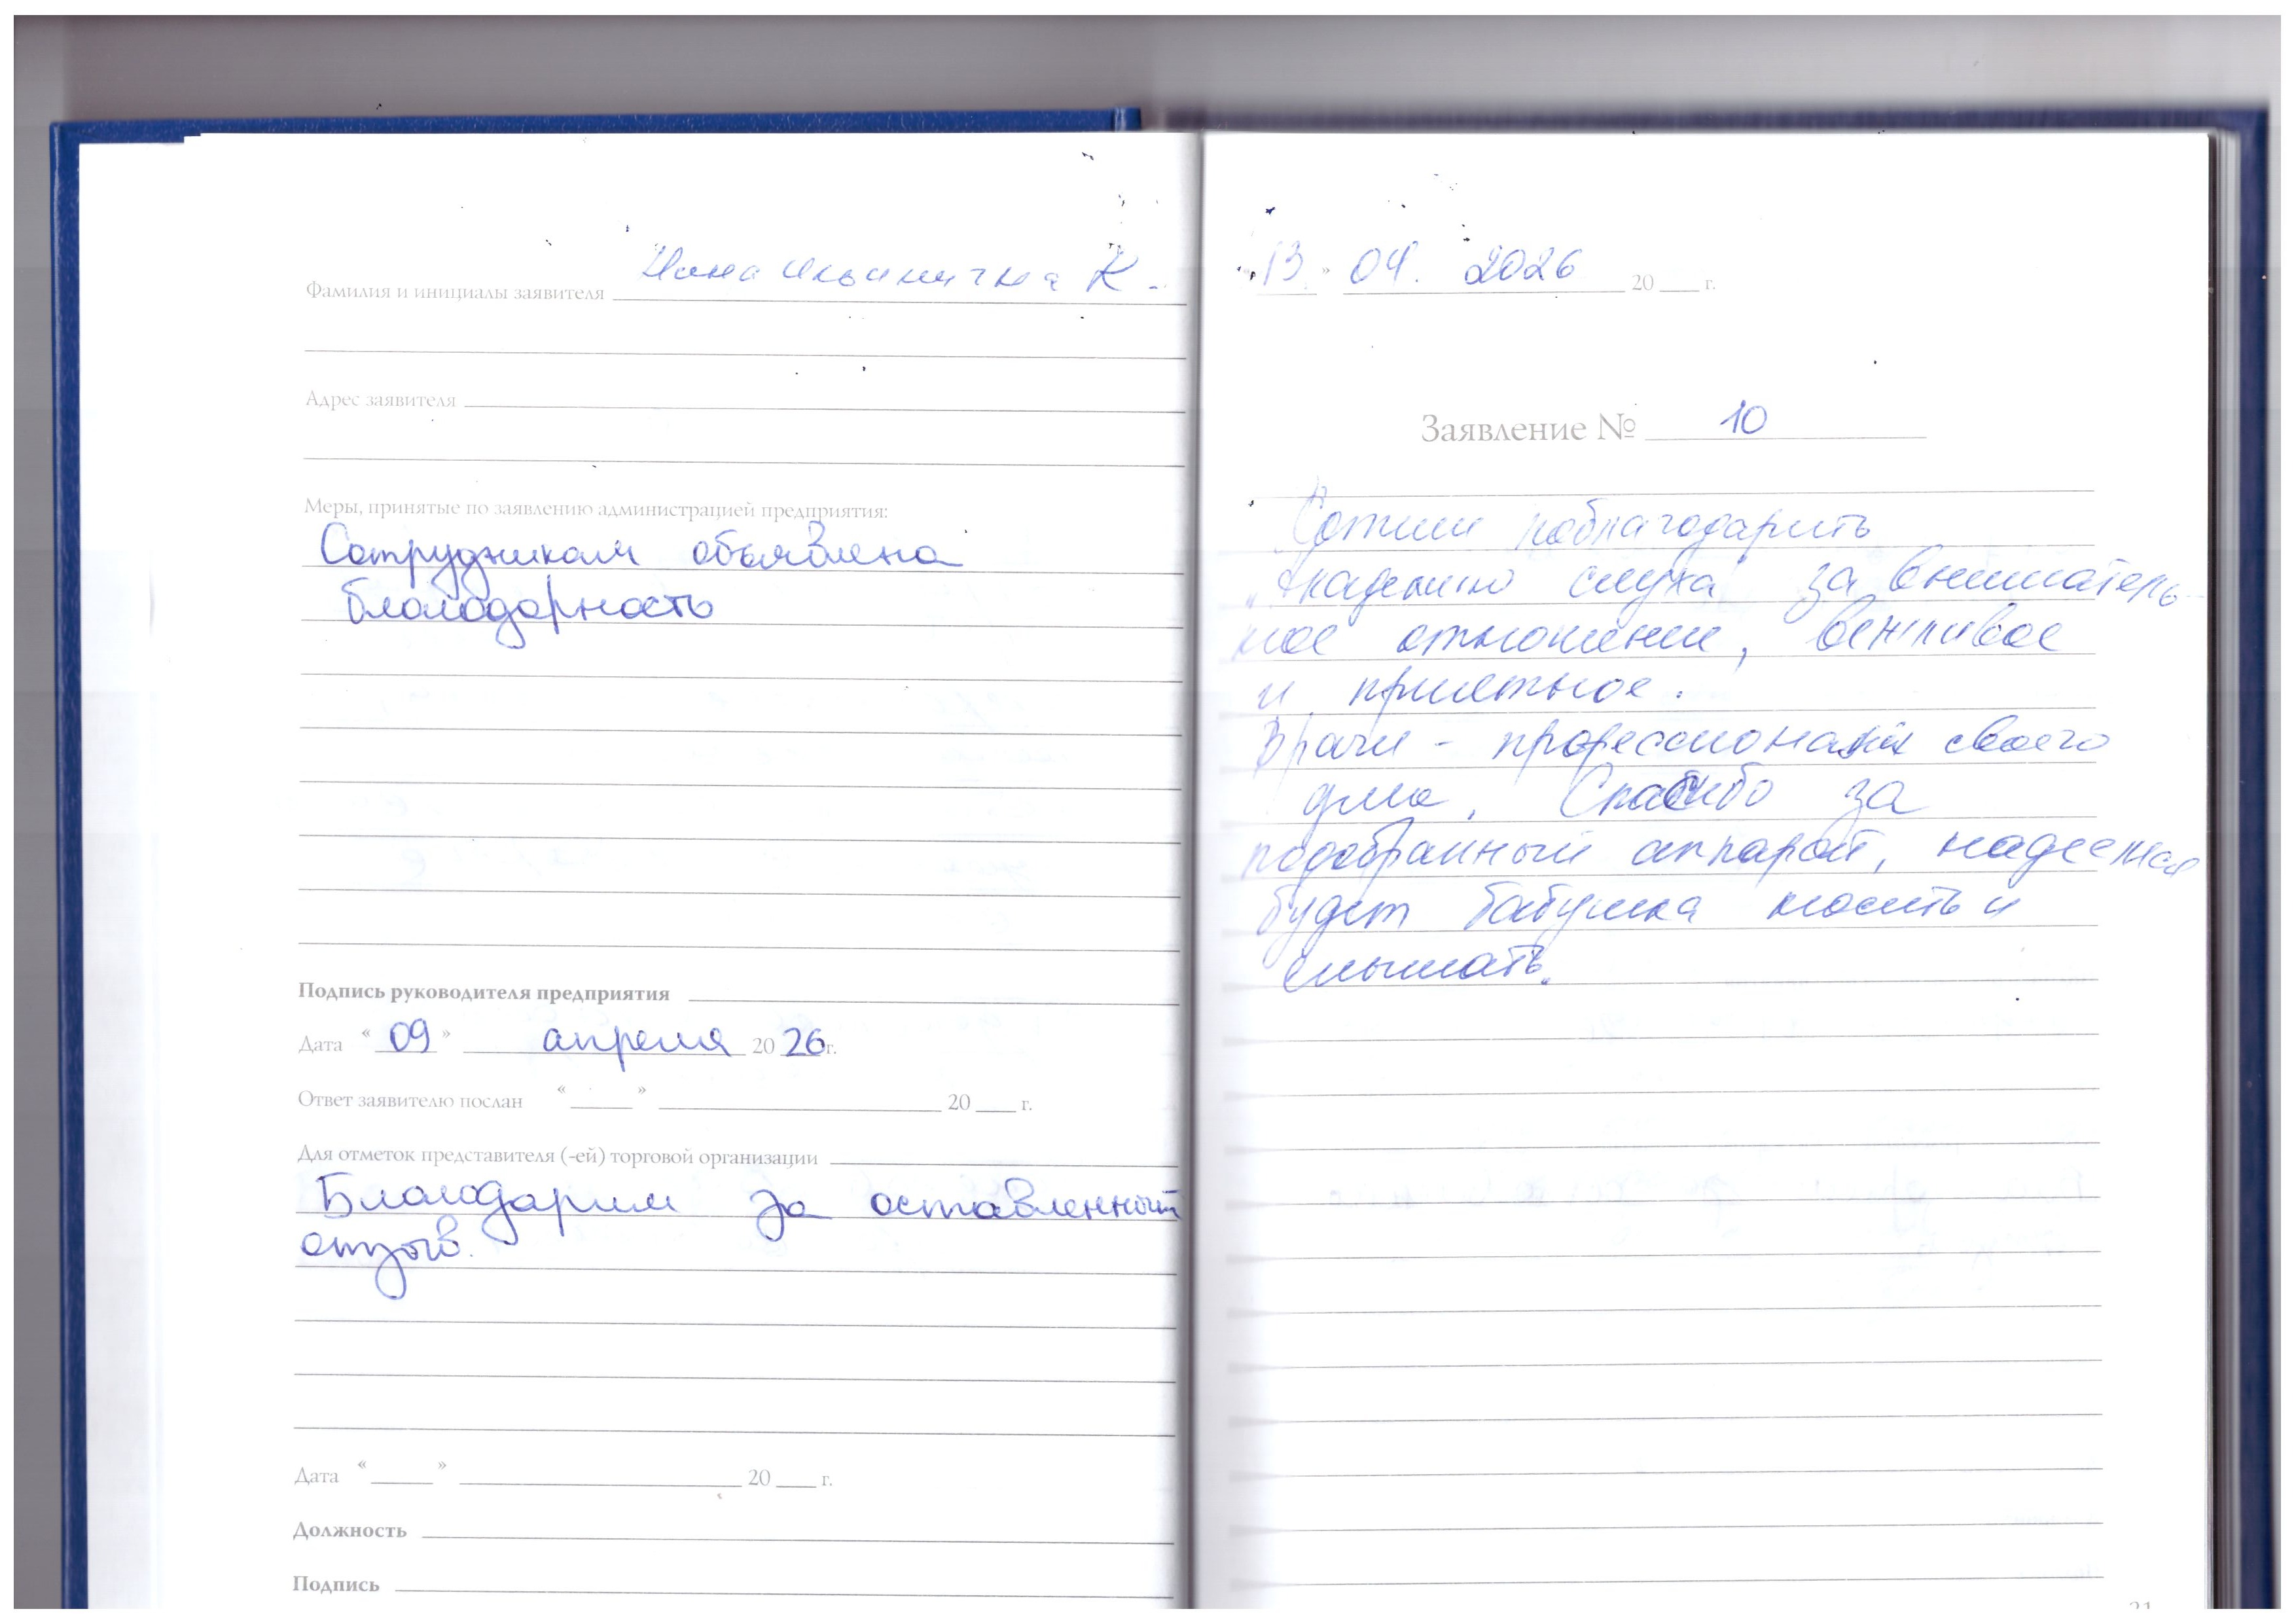 Фамилия и инициалы заявителя Нина Ильинична К.
Адрес заявителя
Меры, принятые по заявлению администрацией предприятия:
Сотрудникам объявлена
благодарность
Подпись руководителя предприятия
Дата "09" апреля 2026г.
Ответ заявителю послан "   " 20 г.
Для отметок представителя (-ей) торговой организации
Благодарим за оставленный
отзыв.
Дата "   " 20 г.
Должность
Подпись
"13" 04. 2026 20 г.
Заявление № 10
поблагодарить
"Академию слуха" за вниматель
ное отношение, вежливое
и приятное.
Врачи - професионалы своего
дела, Спасибо за
подобранный аппарат, надеемся
будет бабушка носить и
слышать.